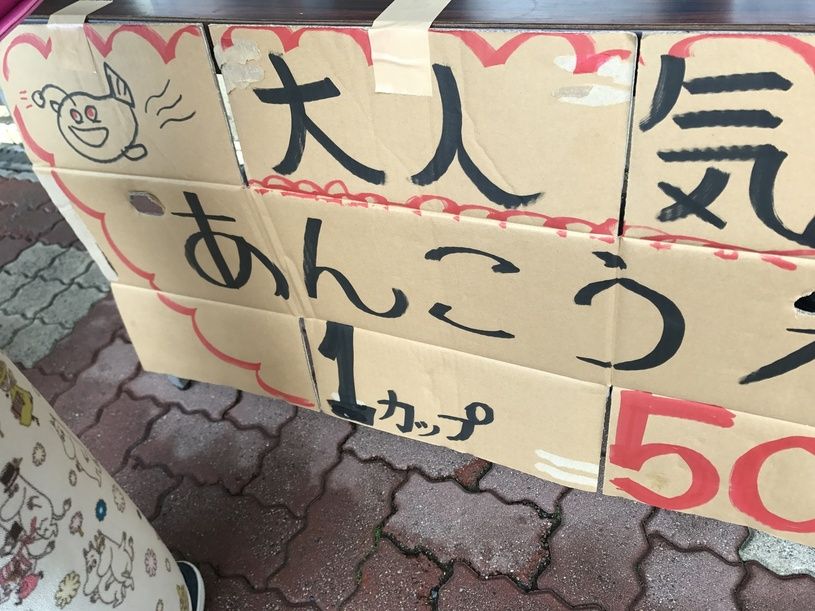 大人気
あんこう
1カップ
50